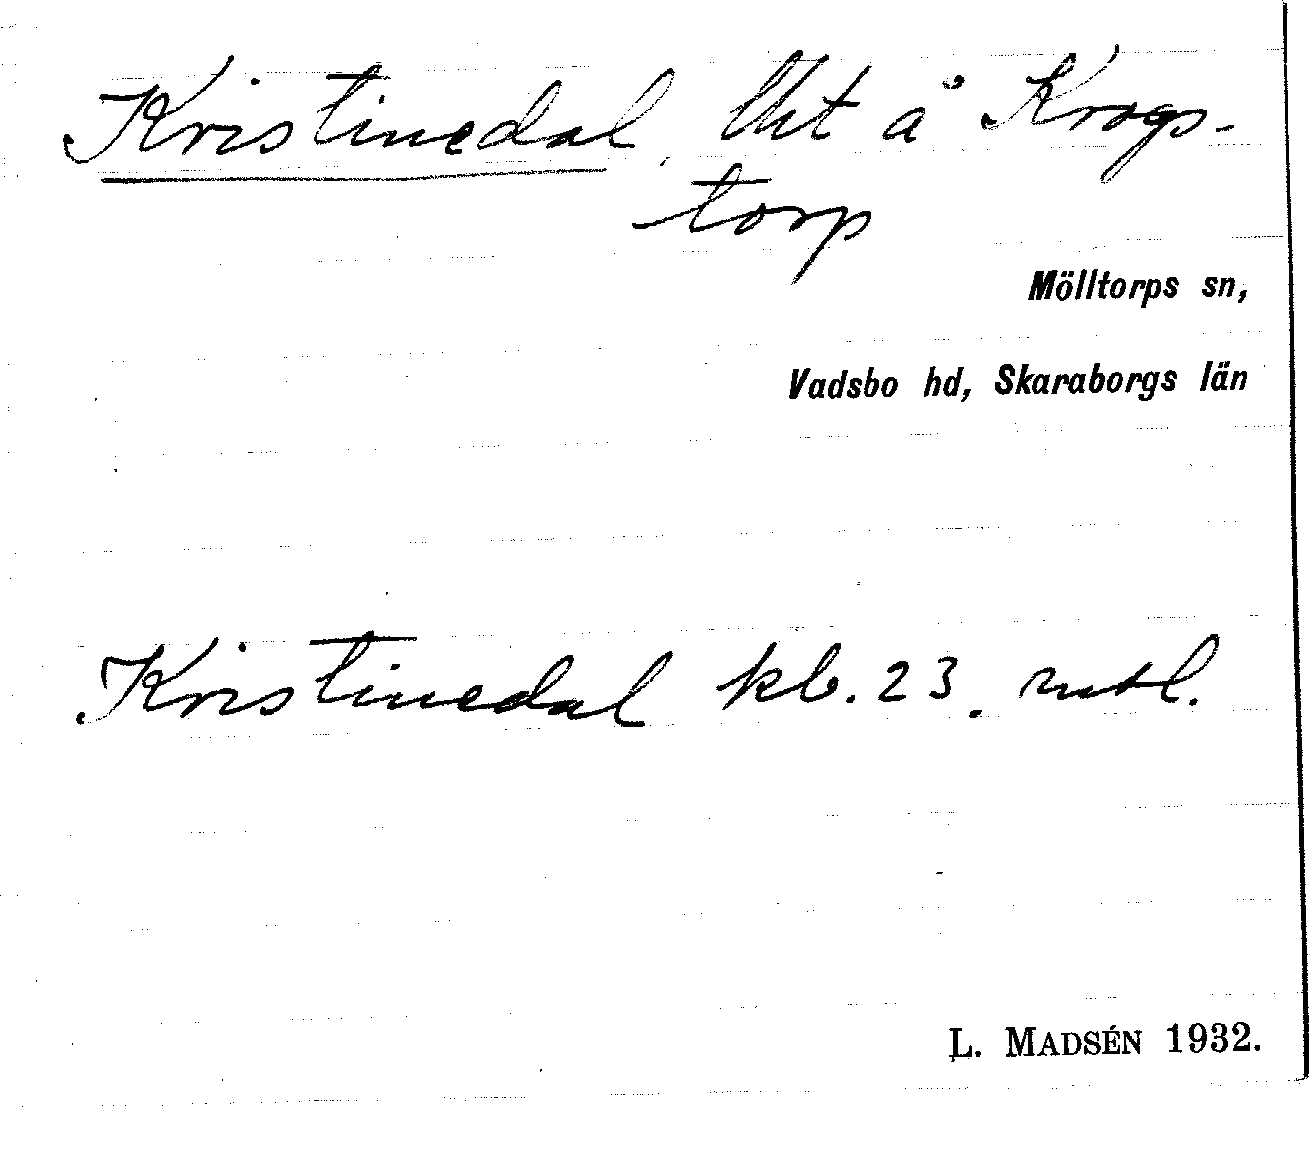 Kristinedal, lht å Krogs-
torp
Mölltorps sn,
Vadsbo hd, Skaraborgs län
Kristinedal kb. 23.
L. MADSÉN 1932.